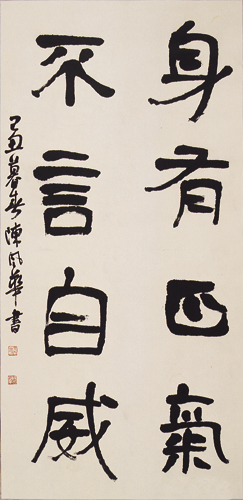 身有正氣
不言自威
乙丑暮春陳風華書